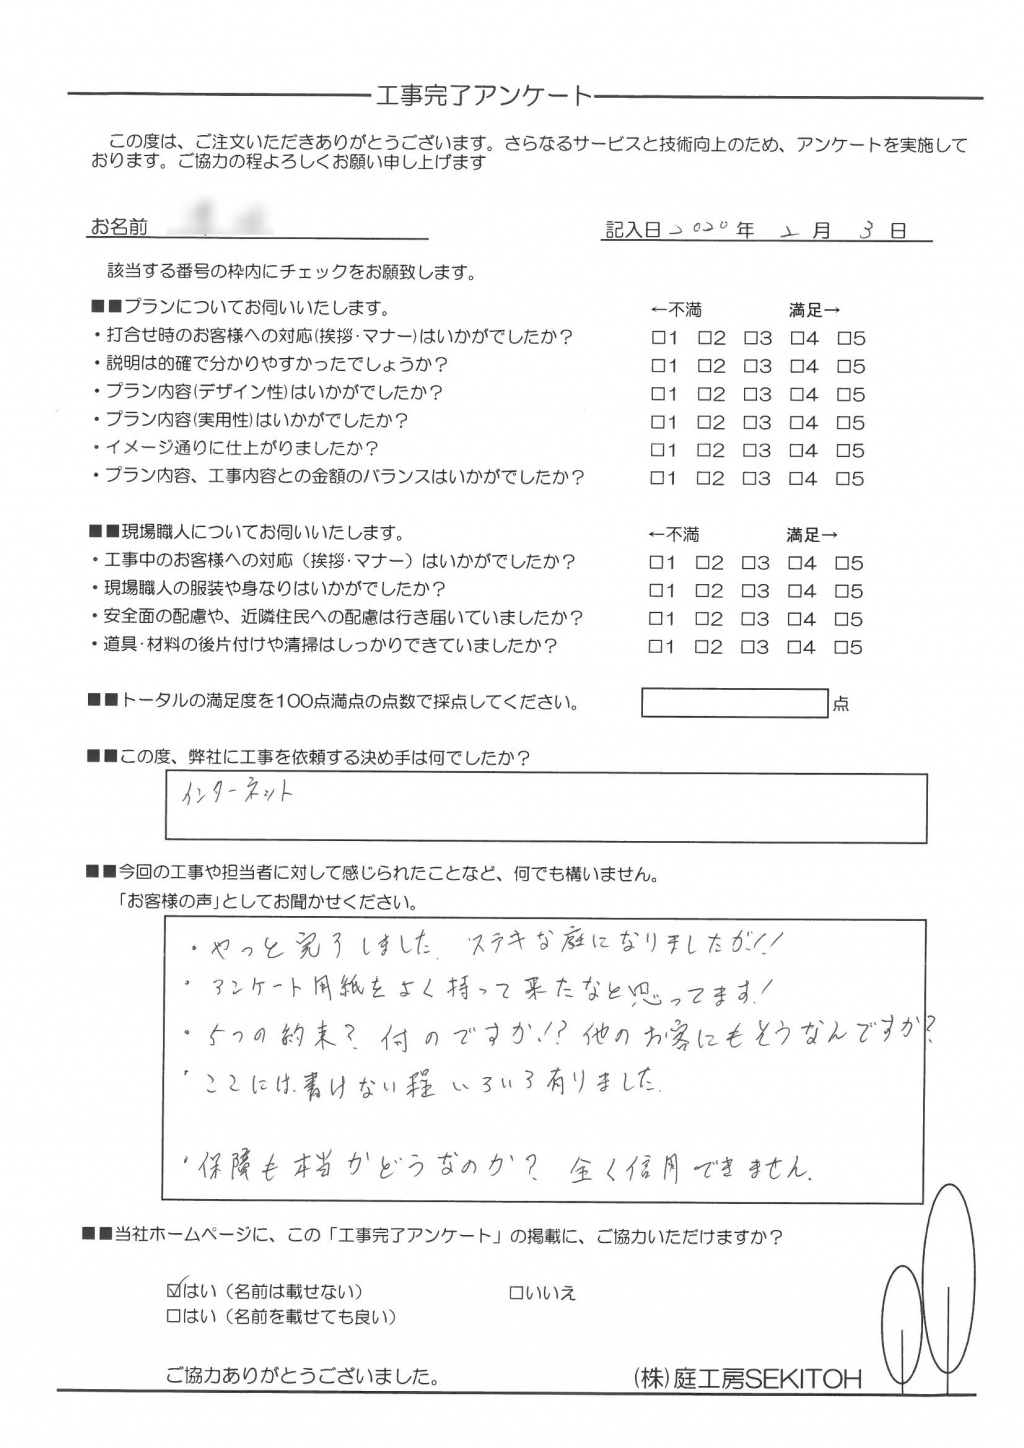 工事完了アンケート
この度は、ご注文いただきありがとうございます。さらなるサービスと技術向上のため、アンケートを実施して
おります。ご協力の程よろしくお願い申し上げます
お名前 記入日 2020 年 2 月 3 日
該当する番号の枠内にチェックをお願致します。
■■プランについてお伺いいたします。 ←不満 満足→
・打合せ時のお客様への対応(挨拶・マナー)はいかがでしたか? □1 □2 □3 □4 □5
・説明は的確で分かりやすかったでしょうか? □1 □2 □3 □4 □5
・プラン内容(デザイン性)はいかがでしたか? □1 □2 □3 □4 □5
・プラン内容(実用性)はいかがでしたか? □1 □2 □3 □4 □5
・イメージ通りに仕上がりましたか? □1 □2 □3 □4 □5
・プラン内容、工事内容との金額のバランスはいかがでしたか? □1 □2 □3 □4 □5
■■現場職人についてお伺いいたします。 ←不満 満足→
・工事中のお客様への対応（挨拶・マナー）はいかがでしたか? □1 □2 □3 □4 □5
・現場職人の服装や身なりはいかがでしたか? □1 □2 □3 □4 □5
・安全面の配慮や、近隣住民への配慮は行き届いていましたか? □1 □2 □3 □4 □5
・道具・材料の後片付けや清掃はしっかりできていましたか? □1 □2 □3 □4 □5
■■トータルの満足度を100点満点の点数で採点してください。 点
■■この度、弊社に工事を依頼する決め手は何でしたか?
インターネット
■■今回の工事や担当者に対して感じられたことなど、何でも構いません。
「お客様の声」としてお聞かせください。
・やっと完了しました. ステキな庭になりましたが!!
・アンケート用紙をよく持って来たなと思ってます!
・5つの約束? 何のですか!? 他のお客にもそうなんですか?
・ここには書けない程 いろいろ有りました.
・保障も本当かどうなのか? 全く信用できません.
■■当社ホームページに、この「工事完了アンケート」の掲載に、ご協力いただけますか?
☑はい（名前は載せない） □いいえ
□はい（名前を載せても良い）
ご協力ありがとうございました。 (株)庭工房SEKITOH